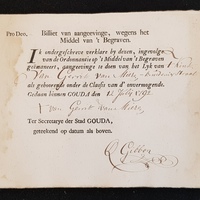 Pro Deo. Billiet van aangeevinge, wegens het
Middel van 't Begraven.
Ik ondergeschreve verklare by deezen, ingevolge
van de Ordonnantie op 't Middel van 't Begraven
geëmaneert, aangeevinge te doen van het Lyk van 't Kind
van Gerrit van
als gehoorende onder de Classis van d' onvermogende.
Gedaan binnen GOUDA den 12 July 1791
van Gerrit van
Ter Secretarye der Stad GOUDA,
geteekend op datum als boven.